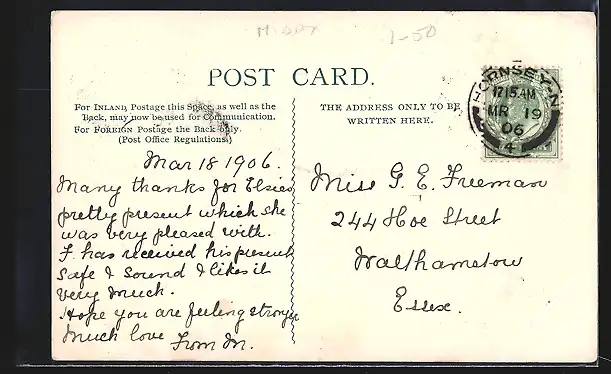 1-50
POST CARD.
For INLAND Postage this Space, as well as the
Back, may now be used for Communication.
For FOREIGN Postage the Back only.
(Post Office Regulations.)
THE ADDRESS ONLY TO BE
WRITTEN HERE.
HORNSEY-N
1215AM
MR 19
06
4
Mar 18 1906.
Many thanks for Elsie's
pretty present which she
was very pleased with.
F. has received his present
safe & sound & likes it
very much.
Hope you are feeling stronger
Much love
From M.
Miss G. E. Freeman
244 Hoe Street
Walthamstow
Essex.